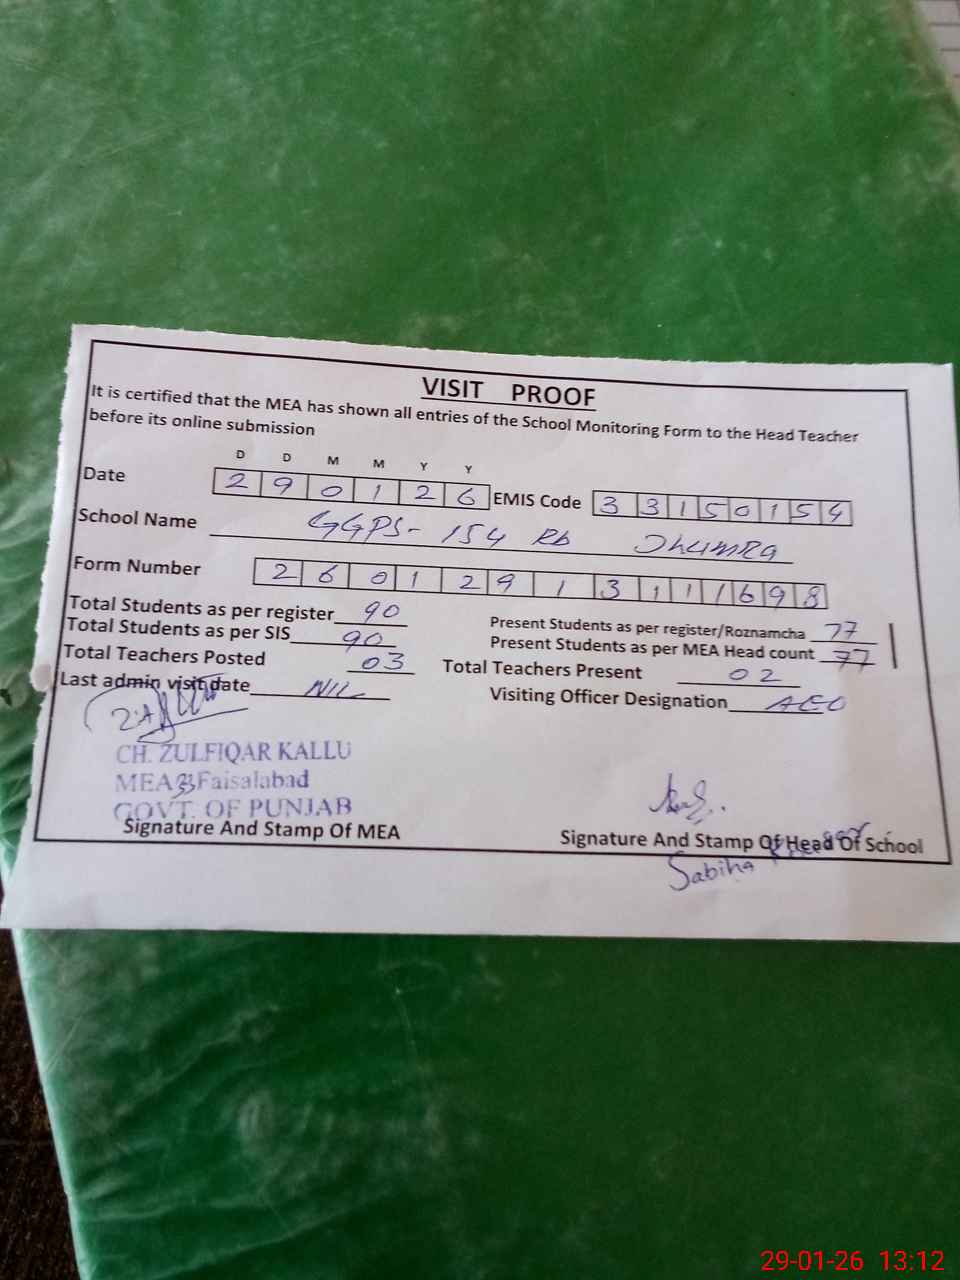 VISIT PROOF
It is certified that the MEA has shown all entries of the School Monitoring Form to the Head Teacher
before its online submission
D D M M Y Y
Date 2 9 0 1 2 6 EMIS Code 3 3 1 5 0 1 5 4
School Name GGPS- 154 Rb Dhumra
Form Number 2 6 0 1 2 9 1 3 1 1 1 6 9 8
Total Students as per register 90 Present Students as per register/Roznamcha 77
Total Students as per SIS 90 Present Students as per MEA Head count 77
Total Teachers Posted 03 Total Teachers Present 02
Last admin visit date NIL Visiting Officer Designation AEO
CH. ZULFIQAR KALLU
MEA 33 Faisalabad
GOVT. OF PUNJAB
Signature And Stamp Of MEA Signature And Stamp Of Head Of School
Sabiha
29-01-26 13:12